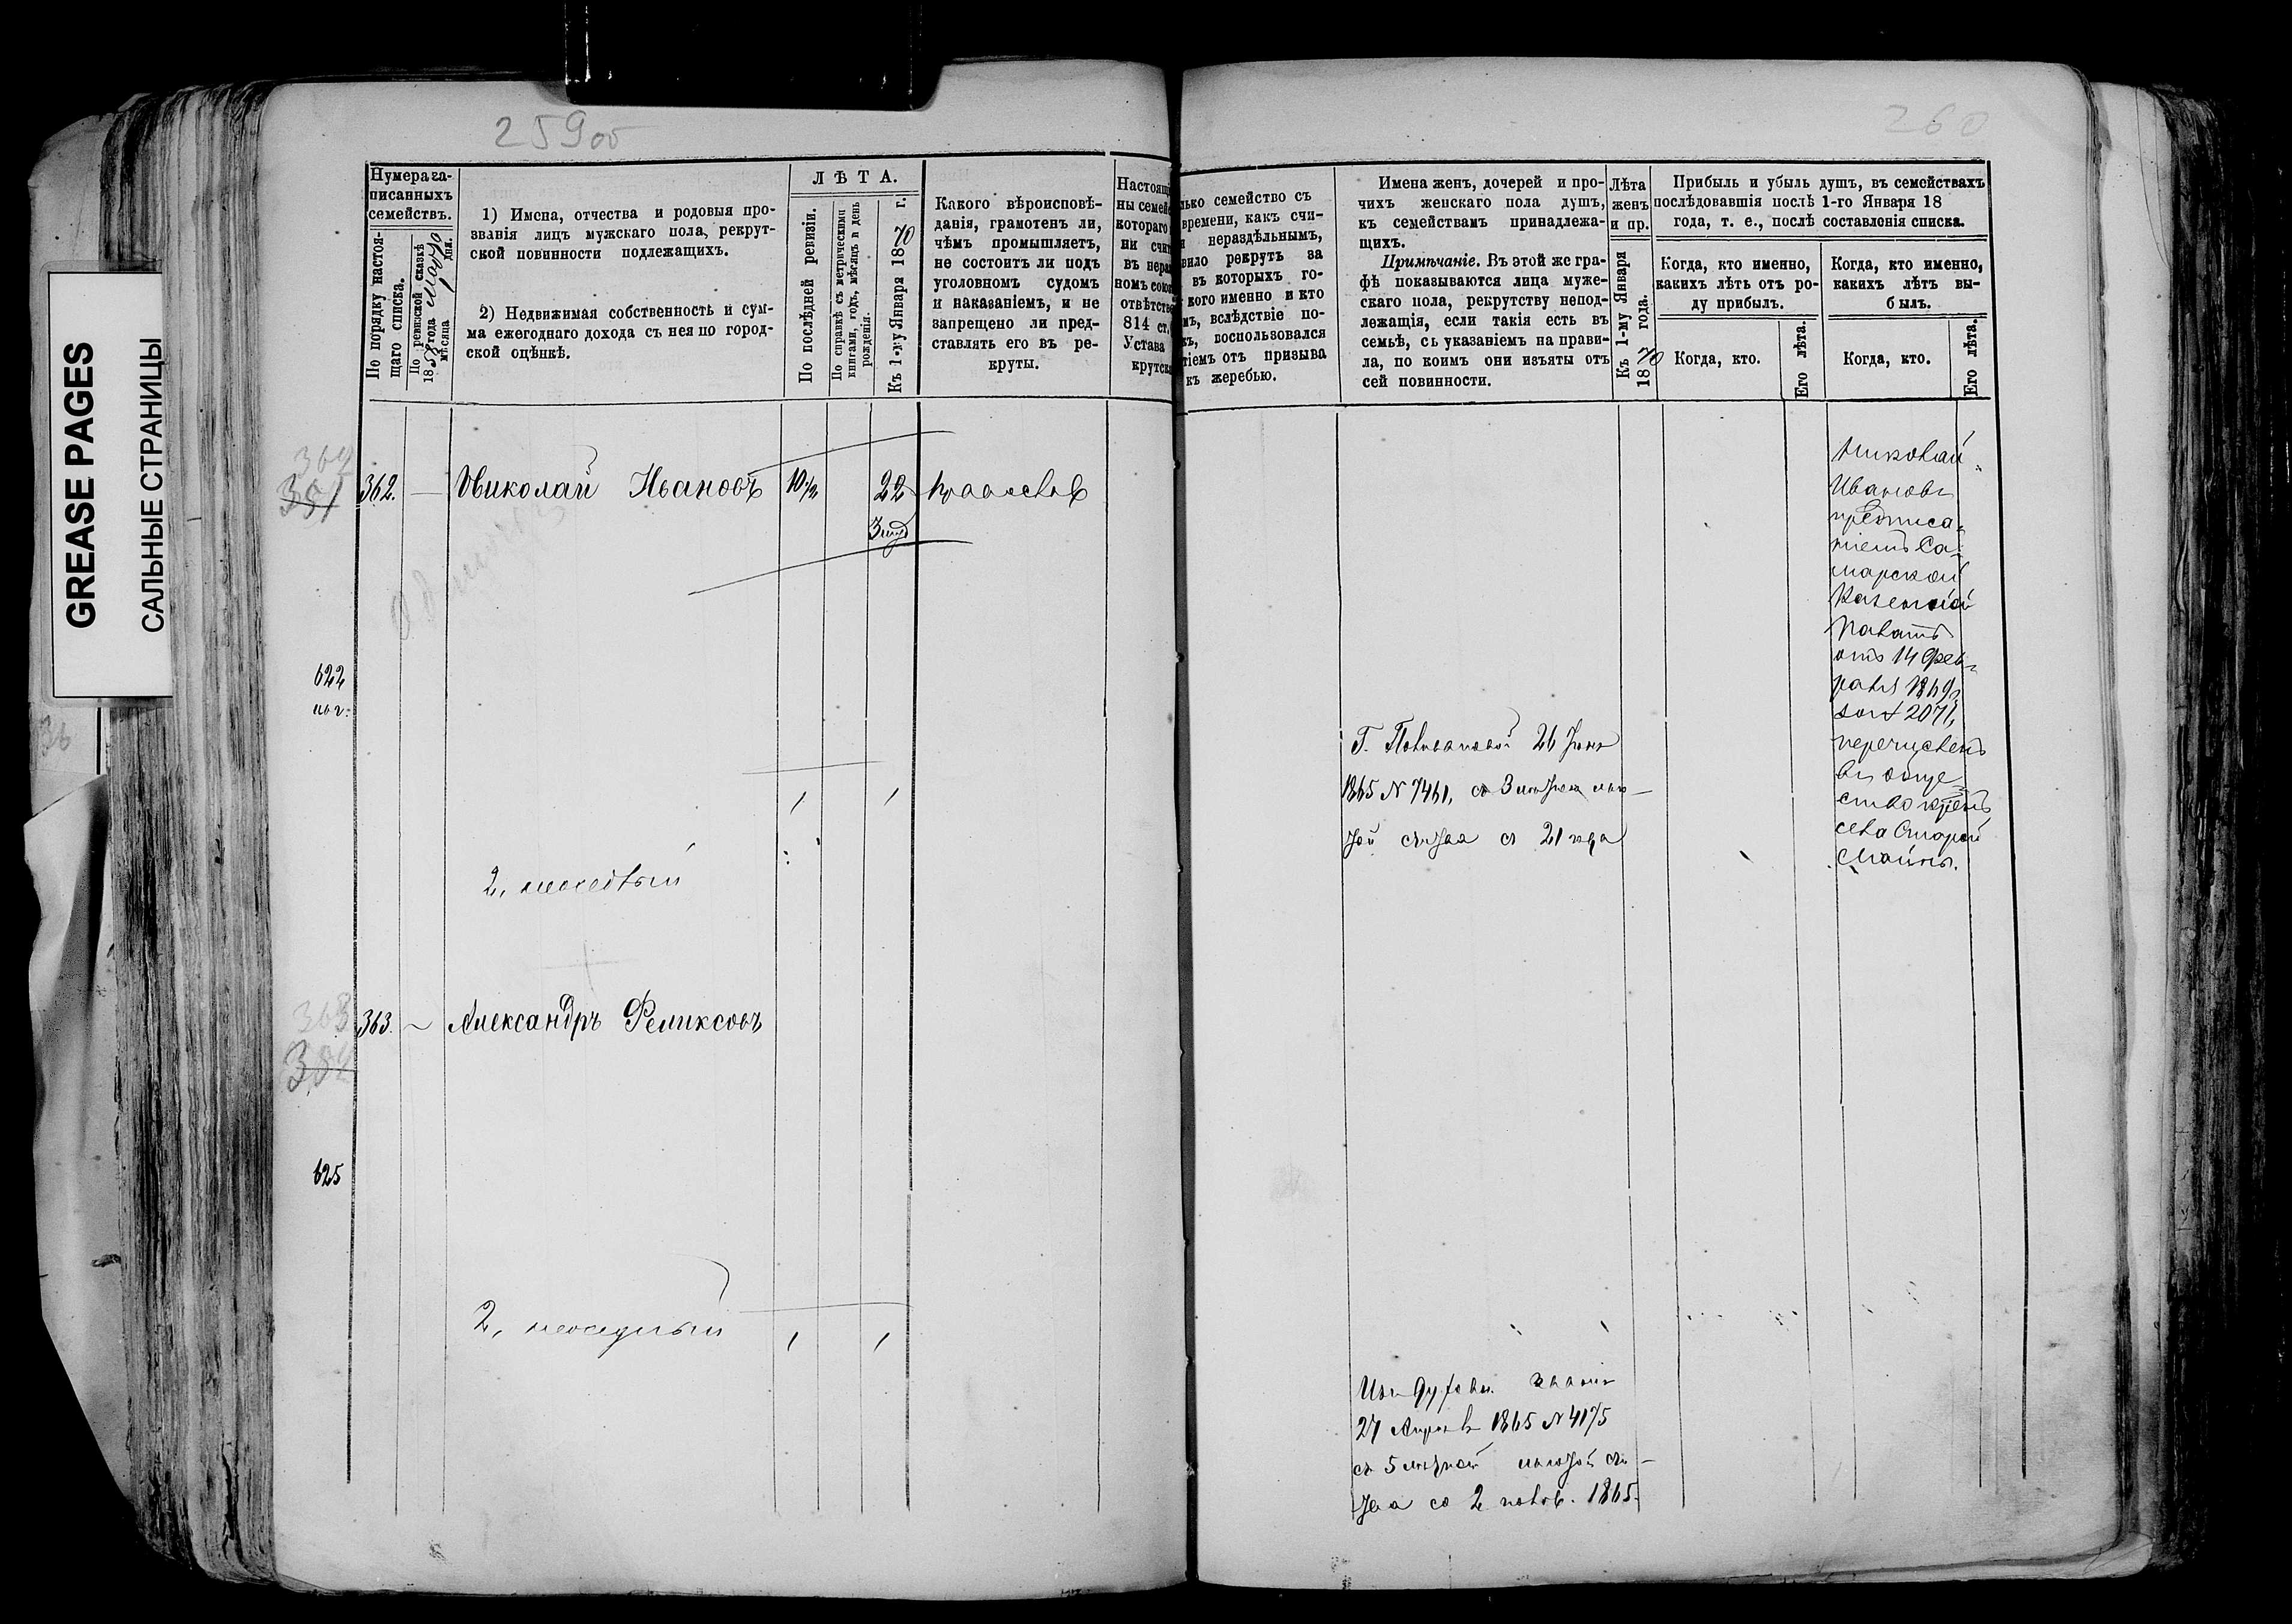 GREASE PAGES
САЛЬНЫЕ СТРАНИЦЫ
259об
260
Нумера за-
писанныхъ
семействъ.
По порядку настоя-
щаго списка.
По ревизской сказкѣ
1858 года
мѣсяца дня.
1) Имена, отчества и родовыя про-
званія лицъ мужскаго пола, рекрут-
ской повинности подлежащихъ.
2) Недвижимая собственность и сум-
ма ежегоднаго дохода съ нея по город-
ской оцѣнкѣ.
ЛѢТА.
По послѣдней ревизіи.
По справкѣ съ метрическими
книгами, годъ, мѣсяцъ и день
рожденія.
Къ 1-му Января 1870 г.
Какого вѣроисповѣ-
данія, грамотенъ ли,
чѣмъ промышляетъ,
не состоитъ ли подъ
уголовномъ судомъ
и наказаніемъ, и не
запрещено ли пред-
ставлять его въ ре-
круты.
Настоящ
ны семей
котораго
ни счи
въ нера
номъ союз
отвѣтстве
814 ст.
Устава
крутск
лько семейство съ
времени, какъ счи-
нераздѣльнымъ,
вило рекрутъ за
въ которыхъ го-
кого именно и кто
мъ, вслѣдствіе по-
ъ, воспользовался
тіемъ отъ призыва
къ жеребью.
Имена женъ, дочерей и про-
чихъ женскаго пола душъ,
къ семействамъ принадлежа-
щихъ.
Примѣчаніе. Въ этой же гра-
фѣ показываются лица муже-
скаго пола, рекрутству непод-
лежащія, если такія есть въ
семьѣ, съ указаніемъ на прави-
ла, по коимъ они изъяты отъ
сей повинности.
Лѣта
женъ
и пр.
Къ 1-му Января
1870 года.
Прибыль и убыль душъ, въ семействахъ
послѣдовавшія послѣ 1-го Января 18
года, т. е., послѣ составленія списка.
Когда, кто именно,
какихъ лѣтъ отъ ро-
ду прибылъ.
Когда, кто именно,
какихъ лѣтъ вы-
былъ.
Когда, кто.
Его лѣта.
Когда, кто.
Его лѣта.
364
351
362. — Николай Ивановъ 10½ 22 православ
622
1 1
2, неоседлый
363. — Александръ Феликсовъ
625
2, неоседлый 1 1
26 Іюня
1865 N 7461, съ 3
съ 21
Николай
Ивановъ
предписа-
ніемъ Са-
марской
Казенной
Палаты
отъ 14 Фев-
раля 1869 г.
за N 2071,
перечисленъ
въ обще
ство крест
села Старой
Майны.
27 Апреля 1865 N 4175
съ 5
со 2 полов. 1865.